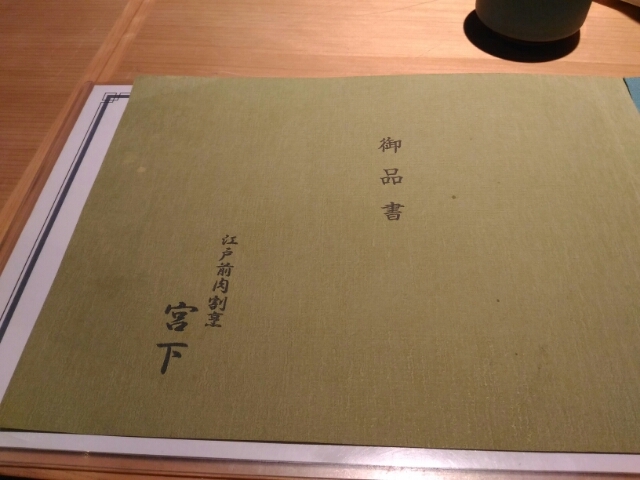 御品書
江戸前肉割烹
宮下